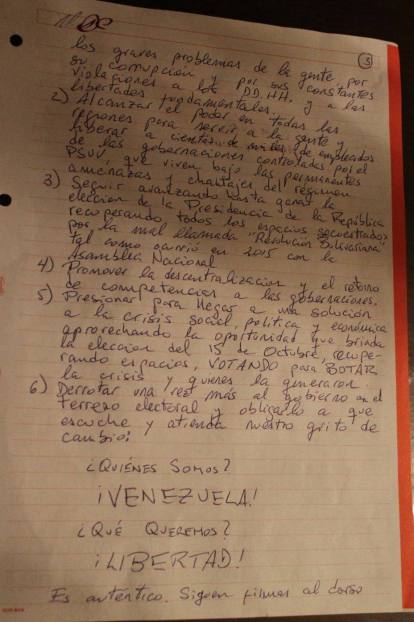 3
los graves problemas de la gente, por
su corrupción y por sus constantes
violaciones a los DD.HH. y a las
libertades fundamentales.
2) Alcanzar el poder en todas las
regiones para servir a la gente y
liberar a cientos de miles de empleados
de las gobernaciones controladas por el
PSUV, que viven bajo las permanentes
amenazas y chantajes del régimen
3) Seguir avanzando hasta ganar la
elección de la Presidencia de la República
recuperando todos los espacios secuestrados
por la mal llamada "Revolución Bolivariana"
tal como ocurrió en 2015 con la
Asamblea Nacional
4) Promover la descentralización y el retorno
de competencias a las gobernaciones.
5) Presionar para llegar a una solución
a la crisis social, política y económica
aprovechando la oportunidad que brinda
la elección del 15 de Octubre, recupe-
rando espacios, VOTANDO para BOTAR
la crisis y quienes la generaron.
6) Derrotar una vez más al gobierno en el
terreno electoral y obligarlo a que
escuche y atienda nuestro grito de
cambio:
¿QUIÉNES SOMOS?
¡VENEZUELA!
¿QUÉ QUEREMOS?
¡LIBERTAD!
Es auténtico. Siguen firmas al dorso